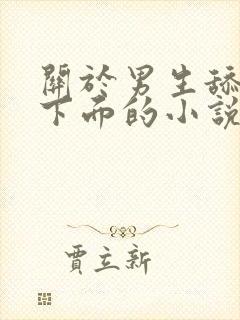 關於男生舔
下面的小說
賈立新